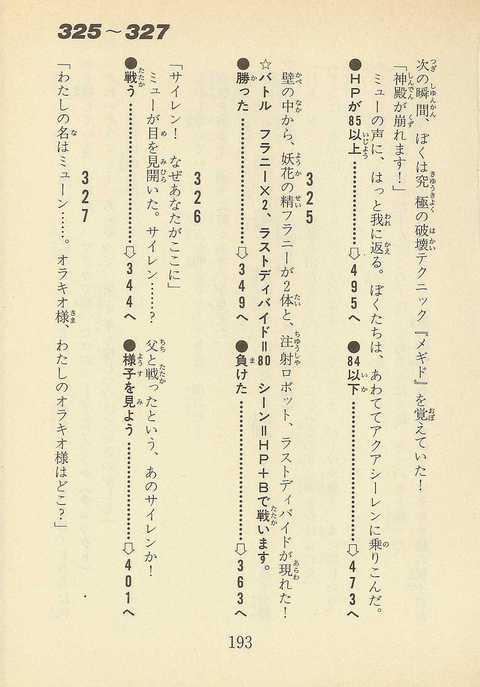 325～327
次の瞬間、ぼくは究極の破壊テクニック『メギド』を覚えていた！
「神殿が崩れます！」
ミューの声に、はっと我に返る。ぼくたちは、あわててアクアシーレンに乗りこんだ。
●HPが85以上…………⇨495へ ●84以下…………⇨473へ
325
壁の中から、妖花の精フラニーが2体と、注射ロボット、ラストディバイドが現れた！
☆バトル フラニー×2、ラストディバイド＝80 シーン＝HP＋Bで戦います。
●勝った…………⇨349へ ●負けた…………⇨363へ
326
「サイレン！ なぜあなたがここに」
ミューが目を見開いた。サイレン……？ 父と戦ったという、あのサイレンか！
●戦う…………⇨344へ ●様子を見よう…………⇨401へ
327
「わたしの名はミューン……。オラキオ様、わたしのオラキオ様はどこ？」
193